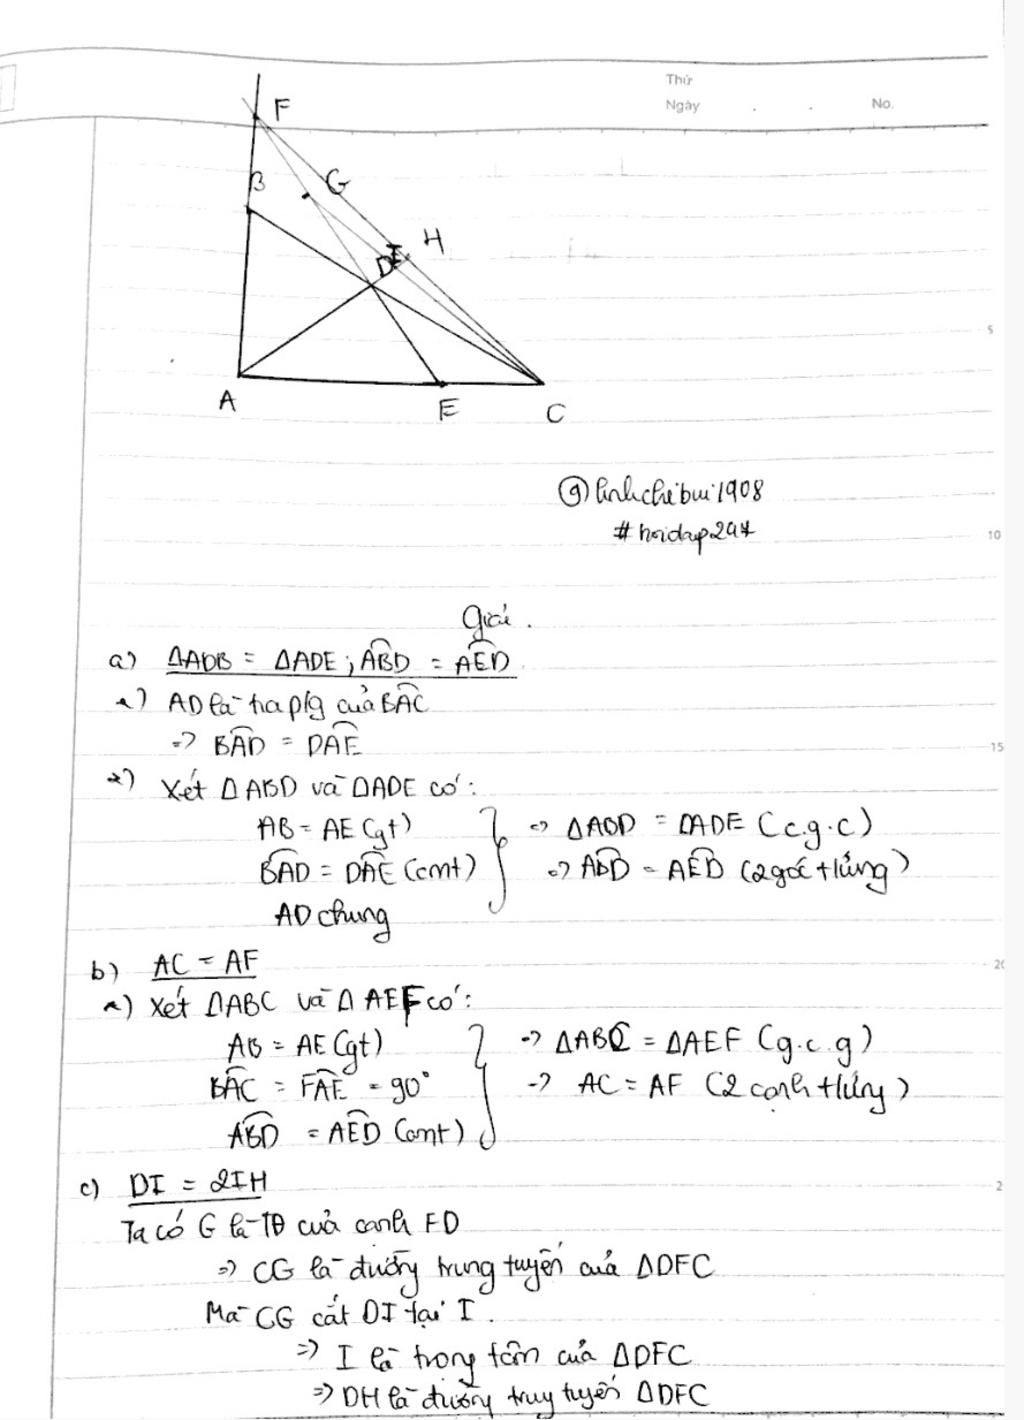 Thứ
Ngày . . No.
F
B
G
H
I
D
A
E
C
5
@linhchibui1908
#hoidap247
10
Giải.
a) ΔADB = ΔADE ; ABD = AED
*) AD là tia p/g của BAC
=> BAD = DAE
15
*) Xét ΔABD và ΔADE có:
AB = AE (gt)
=> ΔABD = ΔADE (c.g.c)
BAD = DAE (cmt)
=> ABD = AED (2 góc t/ứng)
AD chung
b) AC = AF
20
*) Xét ΔABC và ΔAEF có:
AB = AE (gt)
=> ΔABC = ΔAEF (g.c.g)
BAC = FAE = 90°
=> AC = AF (2 cạnh t/ứng)
ABD = AED (cmt)
c) DI = 2IH
2
Ta có G là TĐ của cạnh FD
=> CG là đường trung tuyến của ΔDFC
Mà CG cắt DI tại I.
=> I là trọng tâm của ΔDFC
=> DH là đường truy tuyến ΔDFC